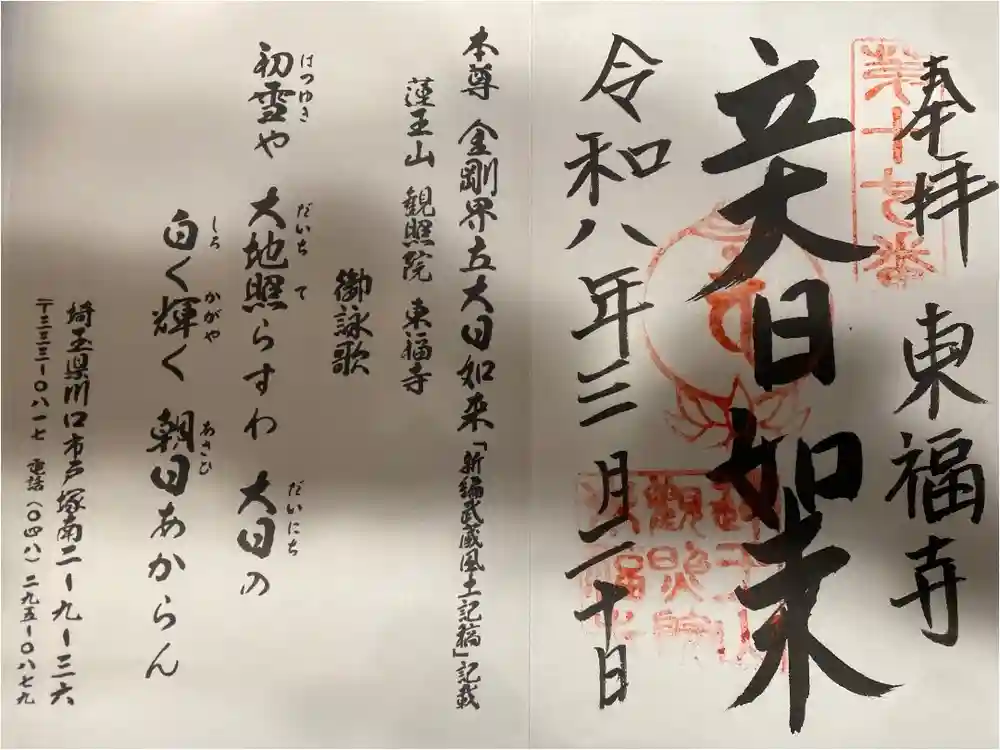 奉拝 東福寺
第十七番
立大日如来
令和八年三月二十日
本尊 金剛界立大日如来「新編武蔵風土記稿」記載
蓮王山 観照院 東福寺
御詠歌
初雪や 大地照らすわ 大日の
はつゆき だいち て だいにち
白く輝く 朝日あからん
しろ かがや あさひ
埼玉県川口市戸塚南二ー九ー三六
〒三三三ー〇八一七 電話(〇四八)二九五ー〇八七九